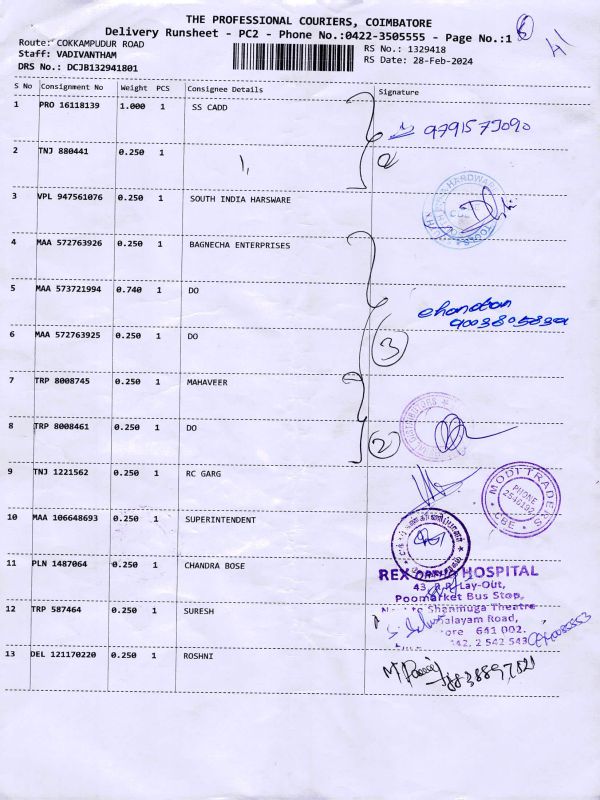 THE PROFESSIONAL COURIERS, COIMBATORE
Delivery Runsheet - PC2 - Phone No.:0422-3505555 - Page No.:1
Route: COKKAMPUDUR ROAD
RS No.: 1329418
Staff: VADIVANTHAM
RS Date: 28-Feb-2024
DRS No.: DCJB132941801
S No Consignment No Weight PCS Consignee Details Signature
1 PRO 16118139 1.000 1 SS CADD
9791573090
2 TNJ 880441 0.250 1
3 VPL 947561076 0.250 1 SOUTH INDIA HARSWARE
4 MAA 572763926 0.250 1 BAGNECHA ENTERPRISES
5 MAA 573721994 0.740 1 DO
chandran
6 MAA 572763925 0.250 1 DO
3
7 TRP 8008745 0.250 1 MAHAVEER
8 TRP 8008461 0.250 1 DO
2
9 TNJ 1221562 0.250 1 RC GARG
MODI TRADERS
PHONE
CBE
10 MAA 106648693 0.250 1 SUPERINTENDENT
11 PLN 1487064 0.250 1 CHANDRA BOSE
REX HOSPITAL
43, Lay-Out,
Poomarket Bus Stop,
Shanmuga Theatre
12 TRP 587464 0.250 1 SURESH
Road,
641 002.
2 542 543
13 DEL 121170220 0.250 1 ROSHNI